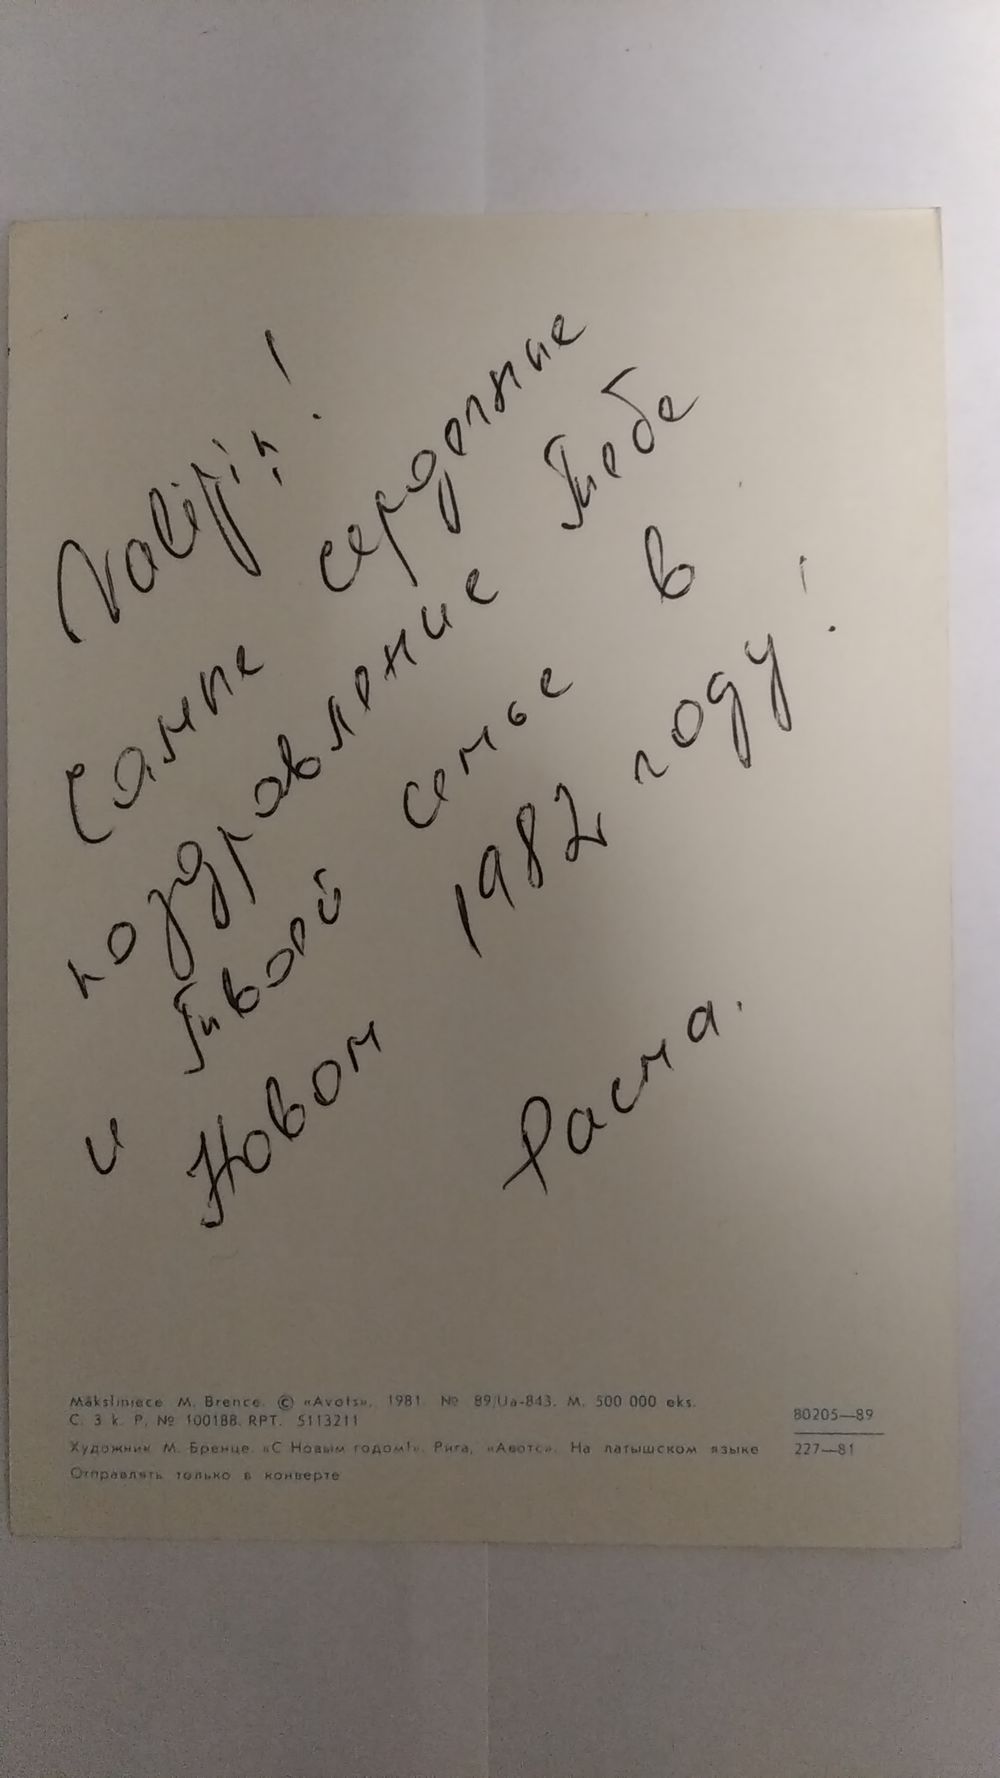 Valērij!
Самые сердечные
поздравление Тебе
и Твоей семье в
Новом 1982 году!
Расма.
Māksliniece M. Brence. © «Avots», 1981. № 89/Ua-843. M. 500 000 eks.
C. 3 k. P. № 100188. RPT. 5113211
Художник М. Бренце. «С Новым годом!». Рига, «Авотс». На латышском языке
Отправлять только в конверте
80205—89
227—81